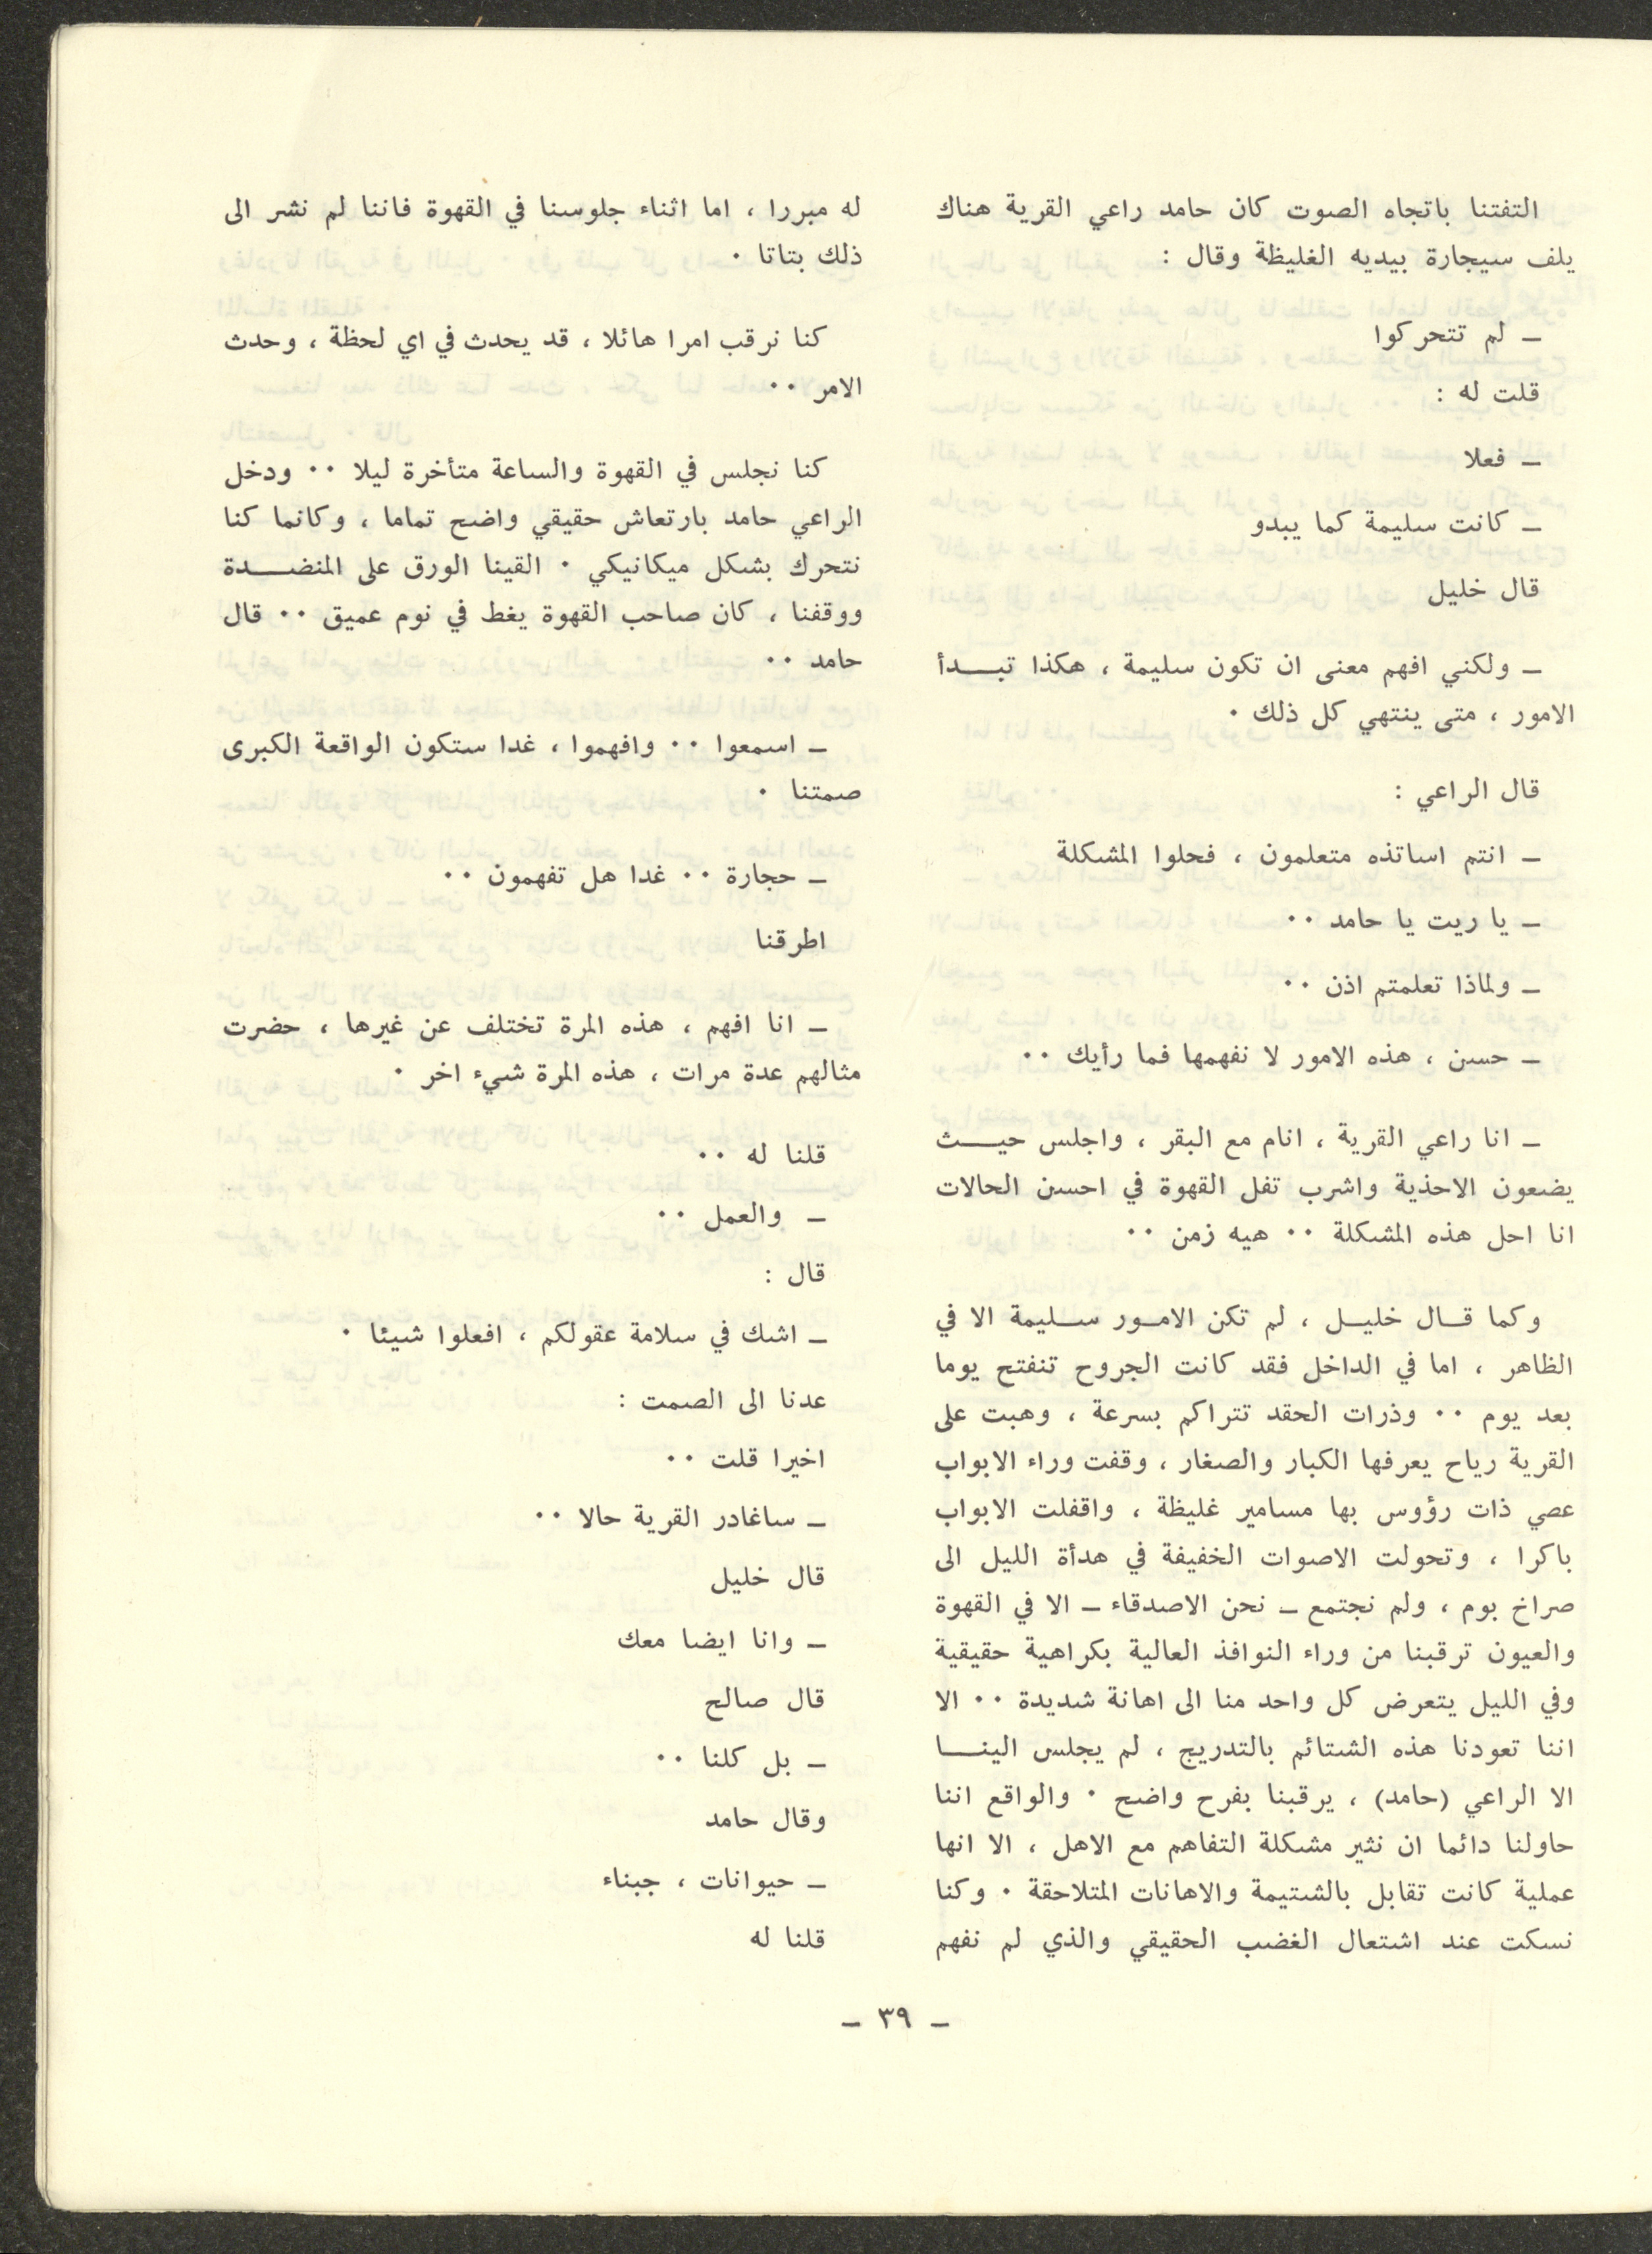 التفتنا باتجاه الصوت كان حامد راعي القرية هناك
يلف سيجارة بيديه الغليظة وقال :
ـ لم تتحركوا
قلت له :
ـ فعلا
ـ كانت سليمة كما يبدو
قال خليل
ـ ولكني افهم معنى ان تكون سليمة ، هكذا تبـــدأ
الامور ، متى ينتهي كل ذلك ٠
قال الراعي :
ـ انتم اساتذه متعلمون ، فحلوا المشكلة
ـ يا ريت يا حامد ٠٠
ـ ولماذا تعلمتم اذن ٠٠
ـ حسن ، هذه الامور لا نفهمها فما رأيك ٠٠
ـ انا راعي القرية ، انام مع البقر ، واجلس حيـــث
يضعون الاحذية واشرب تفل القهوة في احسن الحالات
انا احل هذه المشكلة ٠٠ هيه زمن ٠٠
وكما قــال خليــل ، لم تكن الامــور ســليمة الا في
الظاهر ، اما في الداخل فقد كانت الجروح تنفتح يوما
بعد يوم ٠٠ وذرات الحقد تتراكم بسرعة ، وهبت على
القرية رياح يعرفها الكبار والصغار ، وقفت وراء الابواب
عصي ذات رؤوس بها مسامير غليظة ، واقفلت الابواب
باكرا ، وتحولت الاصوات الخفيفة في هدأة الليل الى
صراخ بوم ، ولم نجتمع ـ نحن الاصدقاء ـ الا في القهوة
والعيون ترقبنا من وراء النوافذ العالية بكراهية حقيقية
وفي الليل يتعرض كل واحد منا الى اهانة شديدة ٠٠ الا
اننا تعودنا هذه الشتائم بالتدريج ، لم يجلس الينـــا
الا الراعي (حامد) ، يرقبنا بفرح واضح ٠ والواقع اننا
حاولنا دائما ان نثير مشكلة التفاهم مع الاهل ، الا انها
عملية كانت تقابل بالشتيمة والاهانات المتلاحقة ٠ وكنا
نسكت عند اشتعال الغضب الحقيقي والذي لم نفهم
له مبررا ، اما اثناء جلوسنا في القهوة فاننا لم نشر الى
ذلك بتاتا ٠
كنا نرقب امرا هائلا ، قد يحدث في اي لحظة ، وحدث
الامر ٠٠
كنا نجلس في القهوة والساعة متأخرة ليلا ٠٠ ودخل
الراعي حامد بارتعاش حقيقي واضح تماما ، وكانما كنا
نتحرك بشكل ميكانيكي ٠ القينا الورق على المنضـــدة
ووقفنا ، كان صاحب القهوة يغط في نوم عميق ٠٠ قال
حامد ٠٠
ـ اسمعوا ٠٠ وافهموا ، غدا ستكون الواقعة الكبرى
صمتنا ٠
ـ حجارة ٠٠ غدا هل تفهمون ٠٠
اطرقنا
ـ انا افهم ، هذه المرة تختلف عن غيرها ، حضرت
مثالهم عدة مرات ، هذه المرة شيء اخر ٠
قلنا له ٠٠
ـ والعمل ٠٠
قال :
ـ اشك في سلامة عقولكم ، افعلوا شيئا ٠
عدنا الى الصمت :
اخيرا قلت ٠٠
ـ ساغادر القرية حالا ٠٠
قال خليل
ـ وانا ايضا معك
قال صالح
ـ بل كلنا ٠٠
وقال حامد
ـ حيوانات ، جبناء
قلنا له
ـ ٣٩ ـ